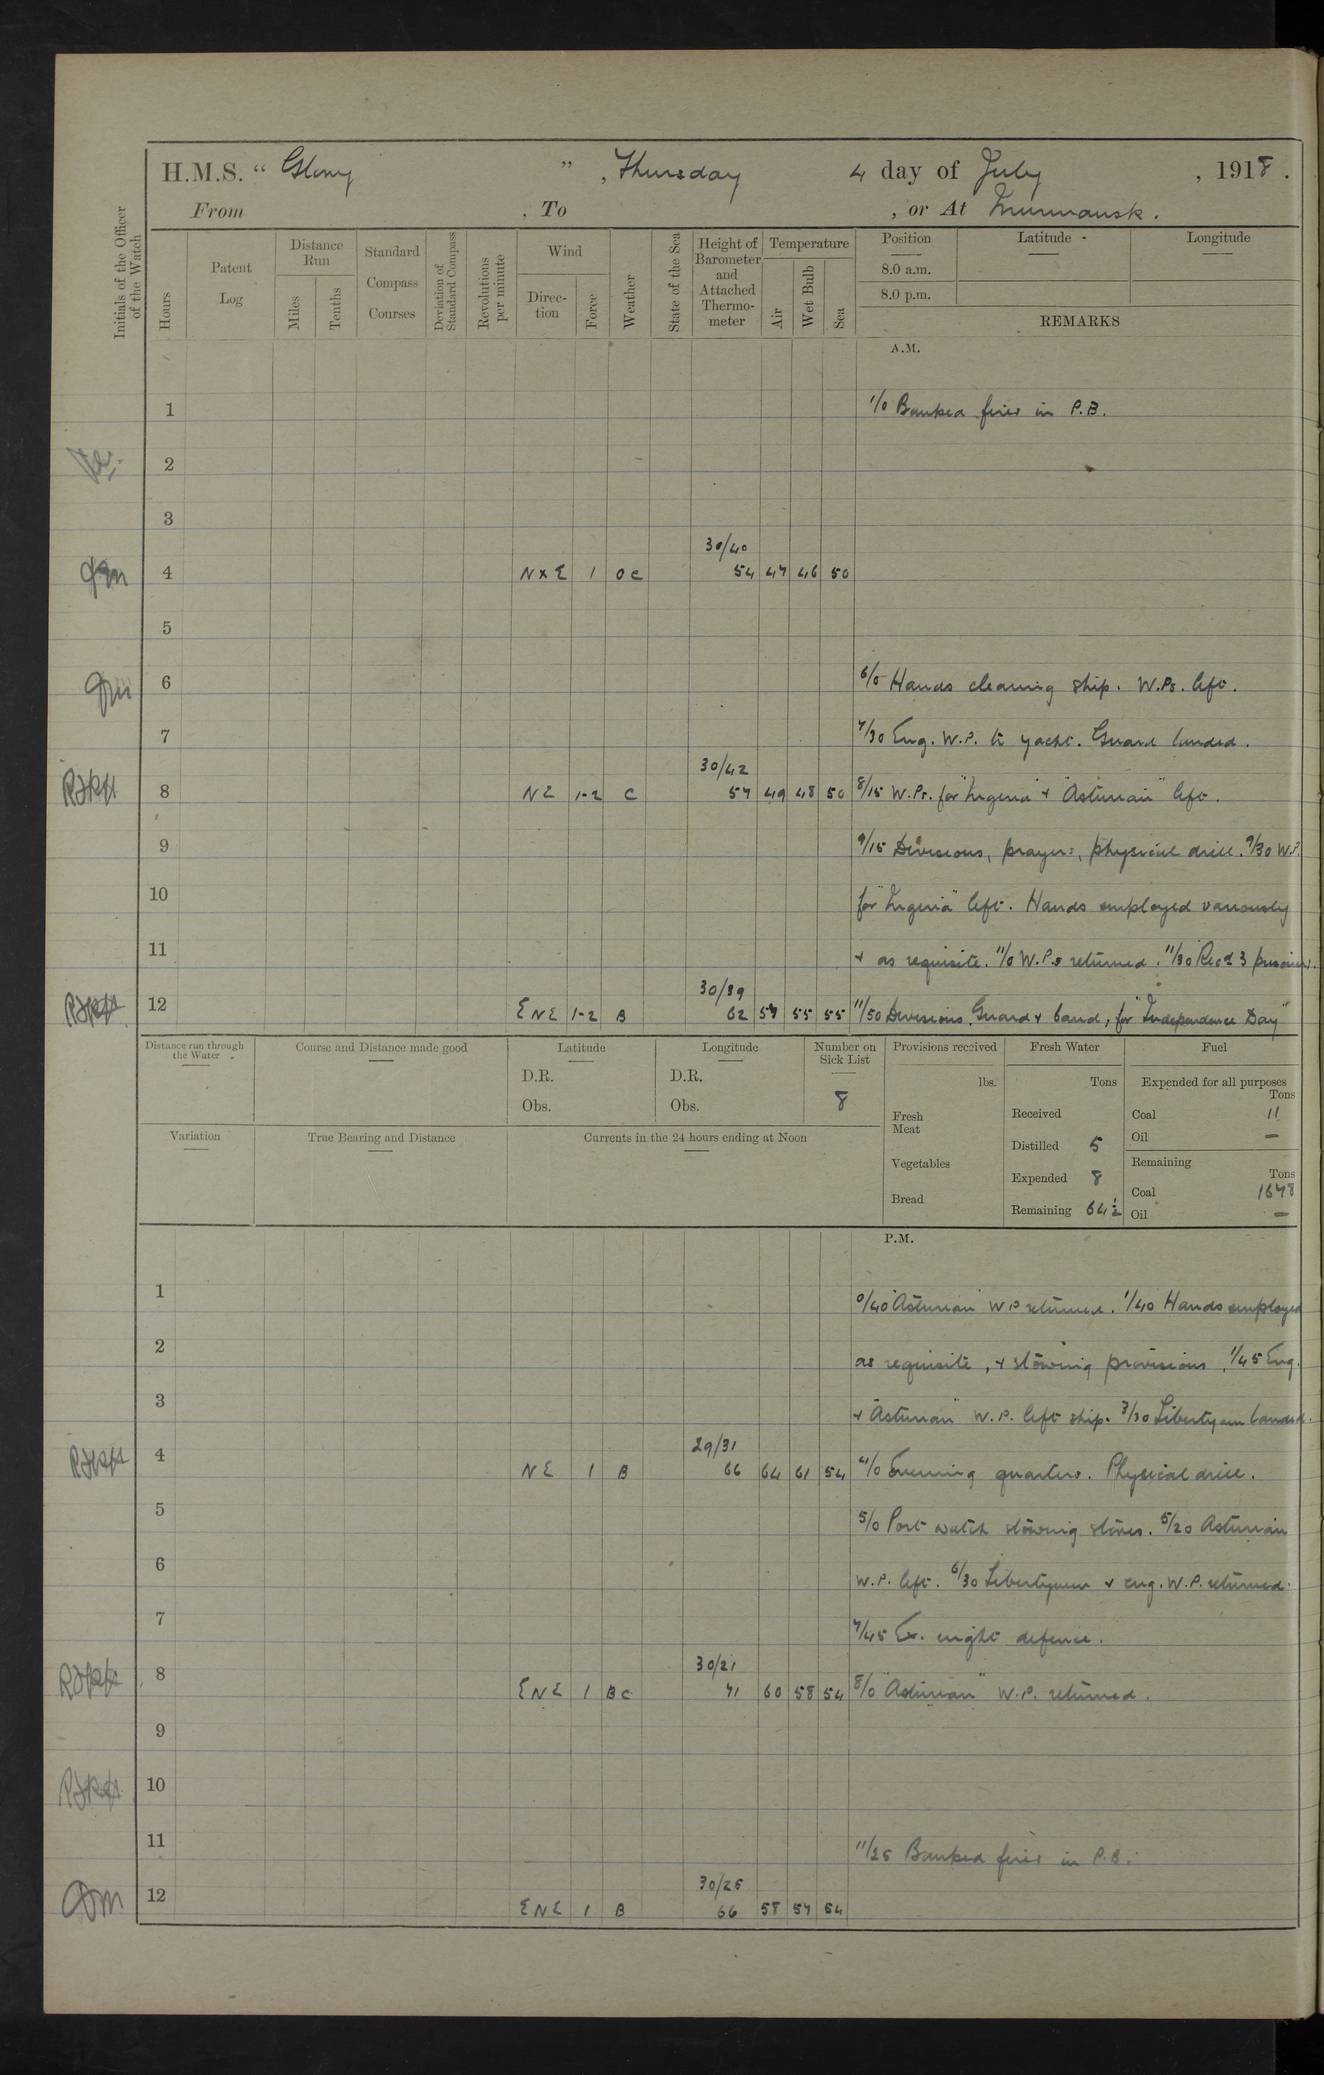 H.M.S. “ Glory ”, Thursday 4 day of July, 1918.
From , To , or At Murmansk.
Initials of the Officer of the Watch
Hours
Patent Log
Distance Run
Miles
Tenths
Standard Compass Courses
Deviation of Standard Compass
Revolutions per minute
Wind
Direc-tion
Force
Weather
State of the Sea
Height of Barometer and Attached Thermo-meter
Temperature
Air
Wet Bulb
Sea
Position
8.0 a.m.
8.0 p.m.
Latitude
Longitude
REMARKS
A.M.
1 1/0 Banked fires in P.B.
2
3
30/40
4 NxE 1 OC 54 47 46 50
5
6 6/0 Hands cleaning ship. W.Ps. left.
7 7/30 Eng. W.P. to yacht. Guard landed.
30/42
8 NE 1-2 C 57 49 48 50 8/15 W.Ps. for "Nigeria" + "Asturian" left.
9 9/15 Divisions, prayers, physical drill. 9/30 W.P.
10 for "Nigeria" left. Hands employed variously
11 + as requisite. 11/0 W.P.s returned. 11/30 Recd 3 prisoners.
30/39
12 ENE 1-2 B 62 57 55 55 11/50 Divisions, Guard + band, for "Independence Day"
Distance run through the Water
Course and Distance made good
Latitude
D.R.
Obs.
Longitude
D.R.
Obs.
Number on Sick List
8
Provisions received
lbs.
Fresh Meat
Vegetables
Bread
Fresh Water
Tons
Received
Distilled 5
Expended 8
Remaining 64½
Fuel
Expended for all purposes
Tons
Coal 11
Oil —
Remaining
Tons
Coal 1678
Oil —
Variation
True Bearing and Distance
Currents in the 24 hours ending at Noon
P.M.
1 0/40 "Asturian" W.P. returned. 1/40 Hands employed
2 as requisite, + stowing provisions, 1/45 Eng.
3 + "Asturian" W.P. left ship. 3/30 Libertymen landed.
29/31
4 NE 1 B 66 64 61 54 4/0 Evening quarters. Physical drill.
5 5/0 Port watch stowing stores. 5/20 Asturian
6 W.P. left. 6/30 Libertymen + eng. W.P. returned.
7 7/45 Ex. night defence.
30/21
8 ENE 1 BC 71 60 58 54 8/0 "Asturian" W.P. returned.
9
10
11 11/25 Banked fires in P.B.
30/25
12 ENE 1 B 66 58 57 54